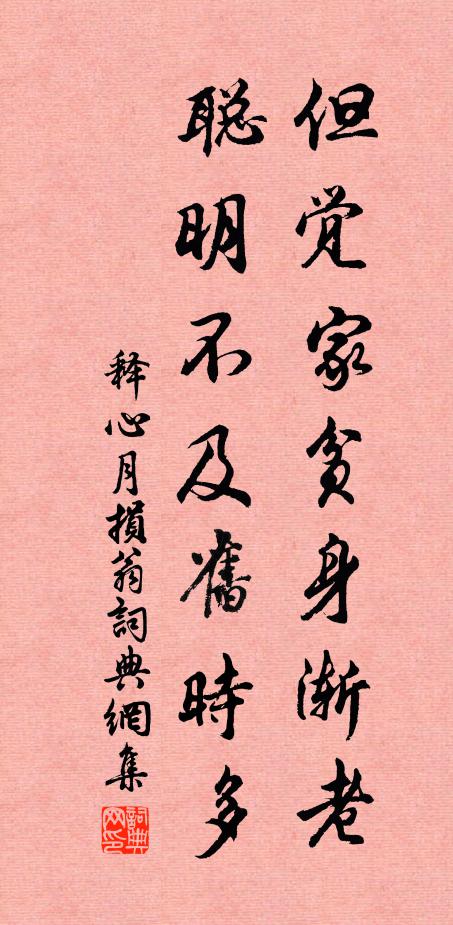 但觉家贫身渐老
聪明不及舊時多
释心月損翁詞典網集
詞典网印